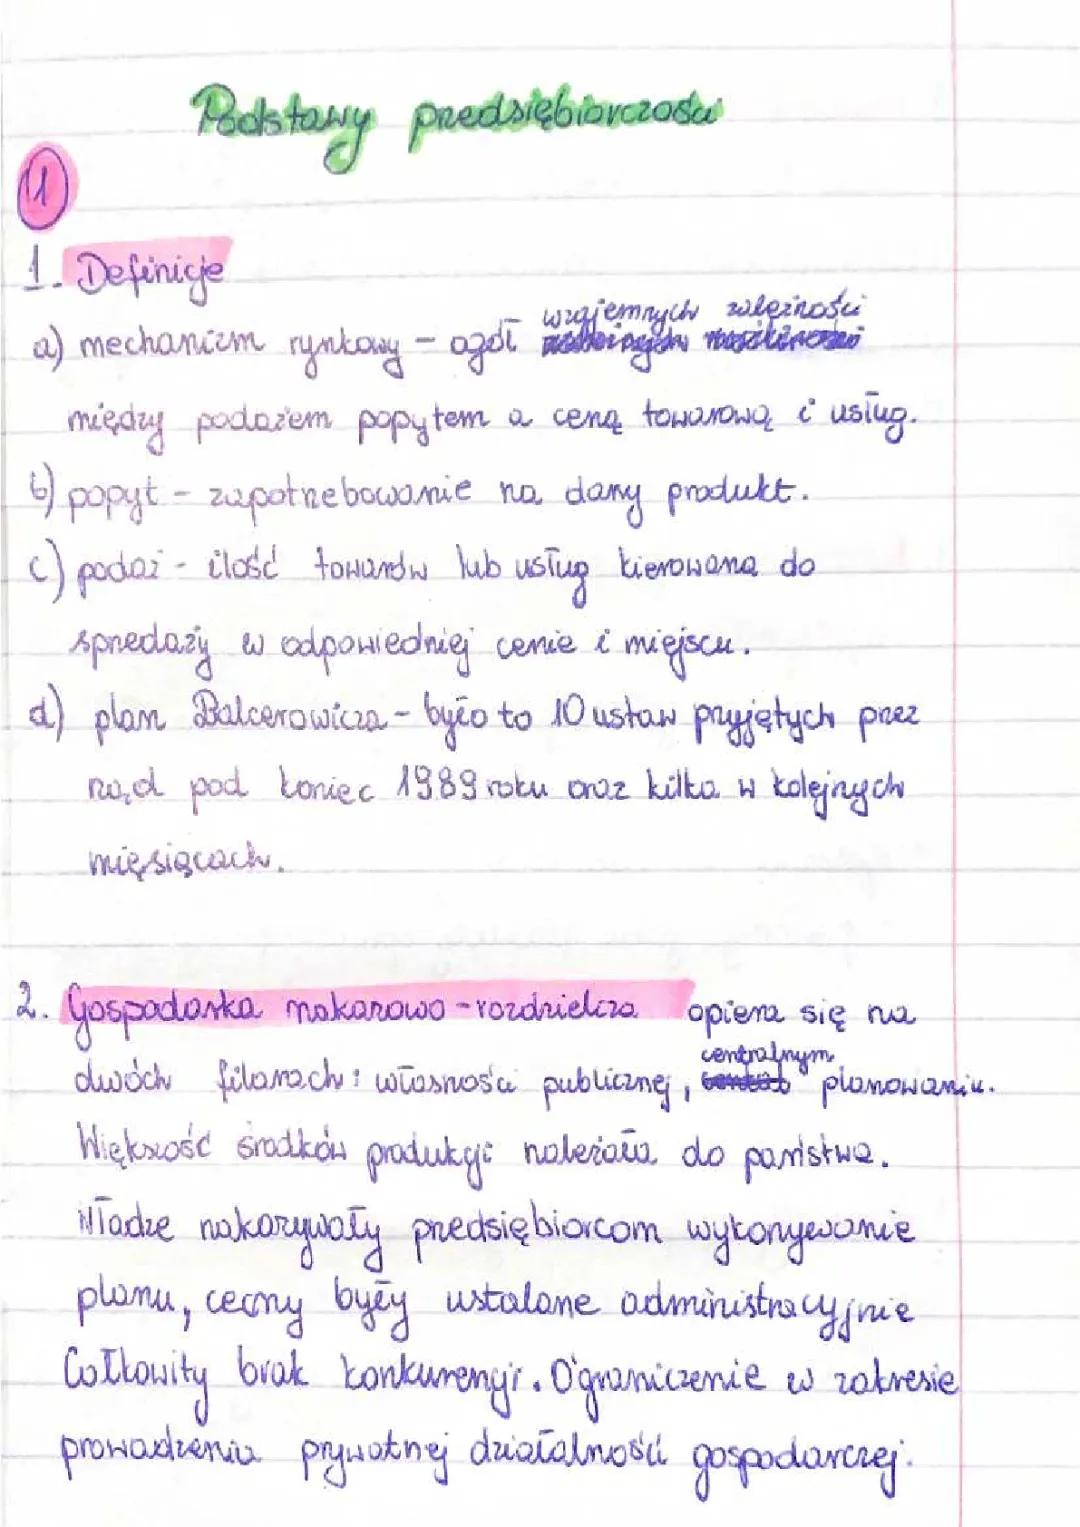 Podstawy przedsiębiorczości
1
1. Definicje
wzajemnych zależności
a) mechanizm rynkowy - ogół
między podażem popytem a ceną towarową i usług.
b) popyt - zapotrzebowanie na dany produkt.
c) podaż - ilość towarów lub usług kierowana do
sprzedaży w odpowiedniej cenie i miejscu.
d) plan Balcerowicza - było to 10 ustaw przyjętych przez
rząd pod koniec 1989 roku oraz kilka w kolejnych
miesiącach.
2. Gospodarka nakazowo-rozdzielcza opiera się na
centralnym
dwóch filarach: własności publicznej, planowaniu.
Większość środków produkcji należała do państwa.
Władze nakazywały przedsiębiorcom wykonywanie
planu, ceny były ustalane administracyjnie
Całkowity brak konkurencji. Ograniczenie w zakresie
prowadzenia prywatnej działalności gospodarczej.